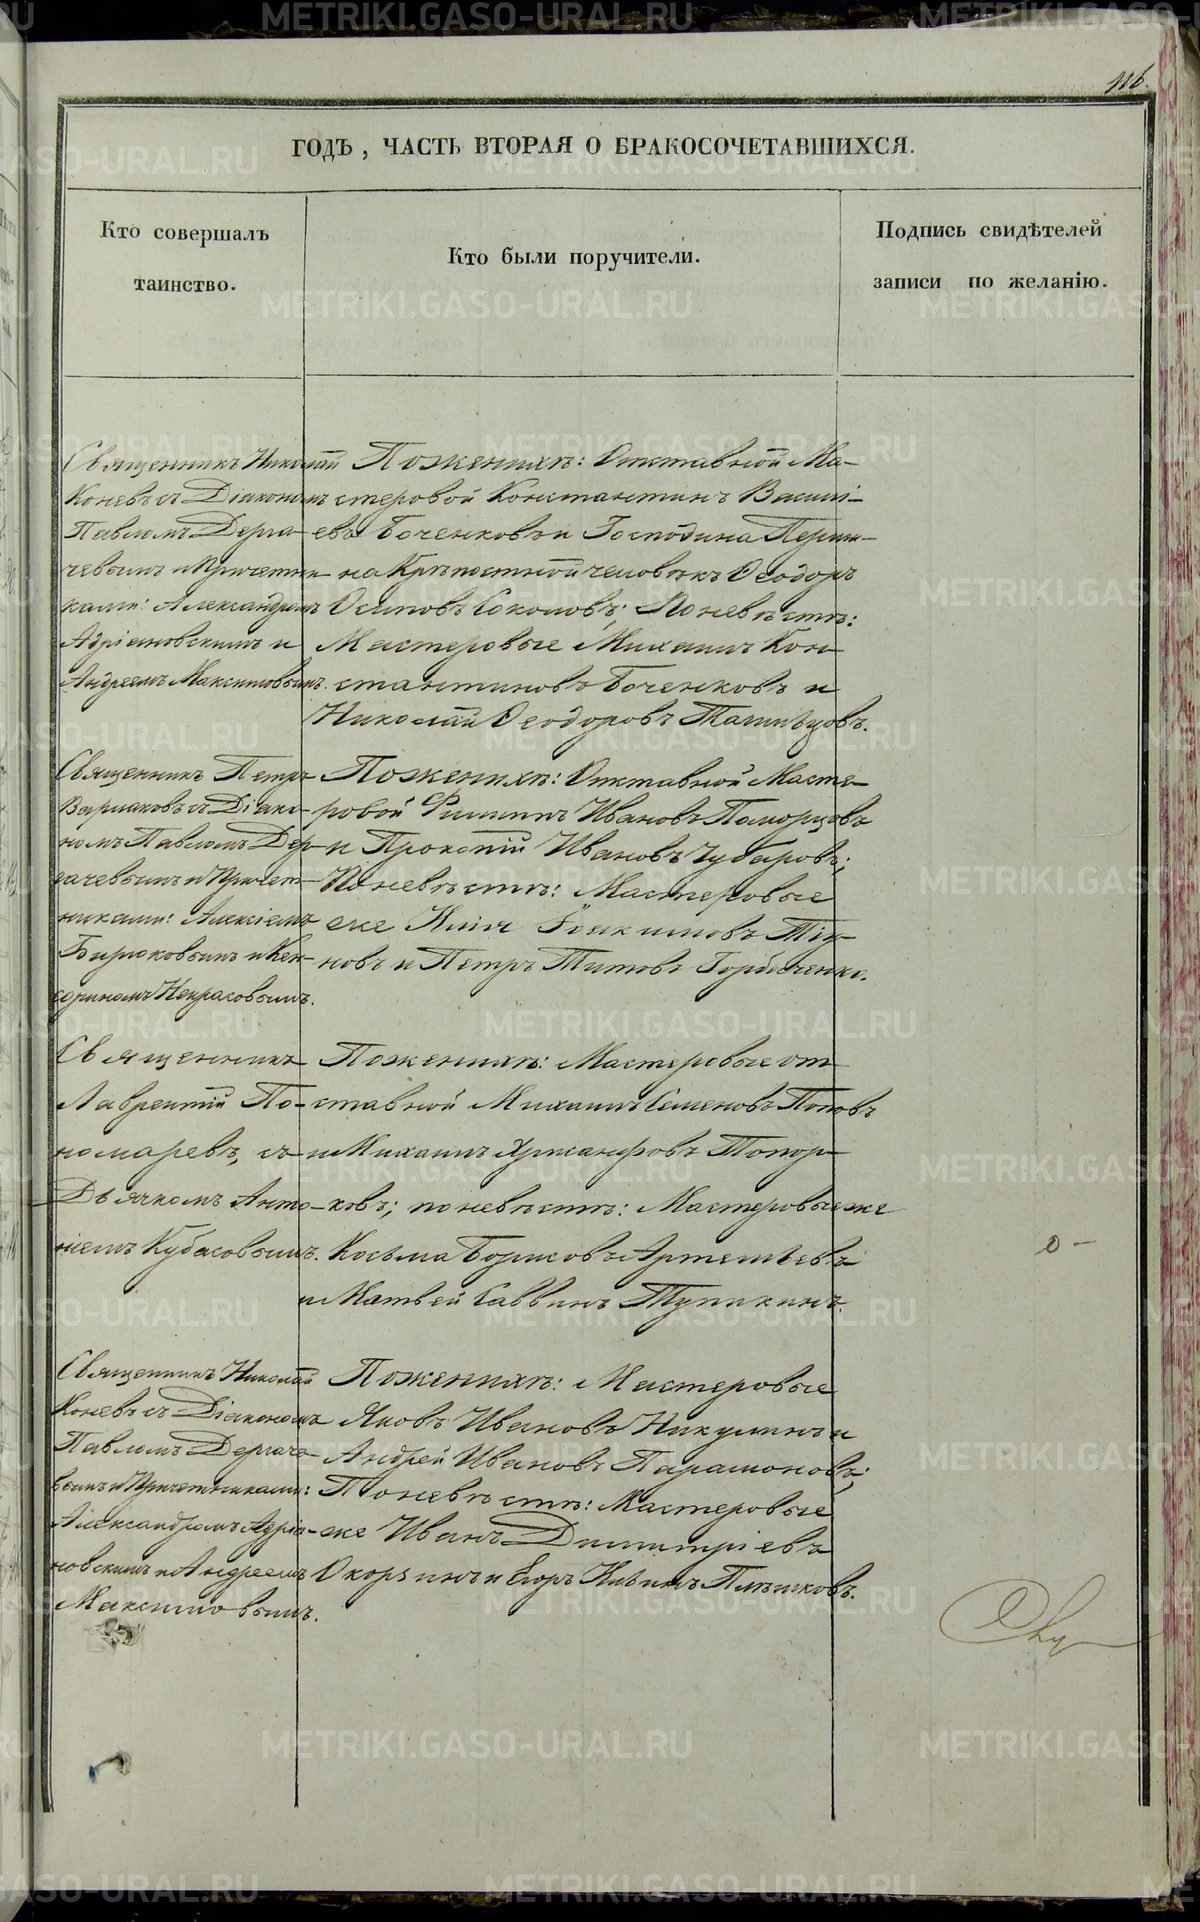 116.
ГОДЪ, ЧАСТЬ ВТОРАЯ О БРАКОСОЧЕТАВШИХСЯ.
Кто совершалъ
таинство.
Кто были поручители.
Подпись свидѣтелей
записи по желанію.
Священникъ Николай
Коневъ съ Діакономъ
Павломъ Дерга-
чевымъ и Причетни-
ками: Александромъ
Адріановскимъ и
Андреемъ Максимовымъ.
По женихѣ: Отставной Ма-
стеровой Константинъ Василі-
евъ Боченковъ и Господина
на Крѣпостной человѣкъ Ѳеодоръ
Осиповъ Соколовъ; По невѣстѣ:
Мастеровые Михаилъ Кон-
стантиновъ Боченковъ и
Николай Ѳеодоровъ
Священникъ Петръ
съ Діако-
номъ Павломъ Дер-
гачевымъ и Причет-
никами: Алексіемъ
Бирюковымъ и Кен-
сориномъ Некрасовымъ.
По женихѣ: Отставной Масте-
ровой Филипъ Ивановъ Поморцовъ
и Прокопій Ивановъ Чубаровъ;
По невѣстѣ: Мастеровые
же Илія Іоакимовъ
новъ и Петръ Титовъ
Священникъ
Лаврентій По-
номаревъ, съ
Дьячкомъ Анто-
ніемъ Кубасовымъ.
По женихѣ: Мастеровые от-
ставной Михаилъ Семеновъ Поповъ
и Михаилъ Топор-
ковъ; по невѣстѣ: Мастеровые же
Козьма Борисовъ Артемьевъ
и Матвей Саввинъ Тупикинъ.
Священникъ Николай
Коневъ съ Діакономъ
Павломъ Дергаче-
вымъ и Причетниками:
Александромъ Адріа-
новскимъ и Андреемъ
Максимовымъ.
По женихѣ: Мастеровые
Яковъ Ивановъ Никулинъ и
Андрей Ивановъ Парамоновъ;
По невѣстѣ: Мастеровые
же Иванъ Димитріевъ
Окорзинъ и Егоръ Плѣшковъ.
METRIKI.GASO-URAL.RU